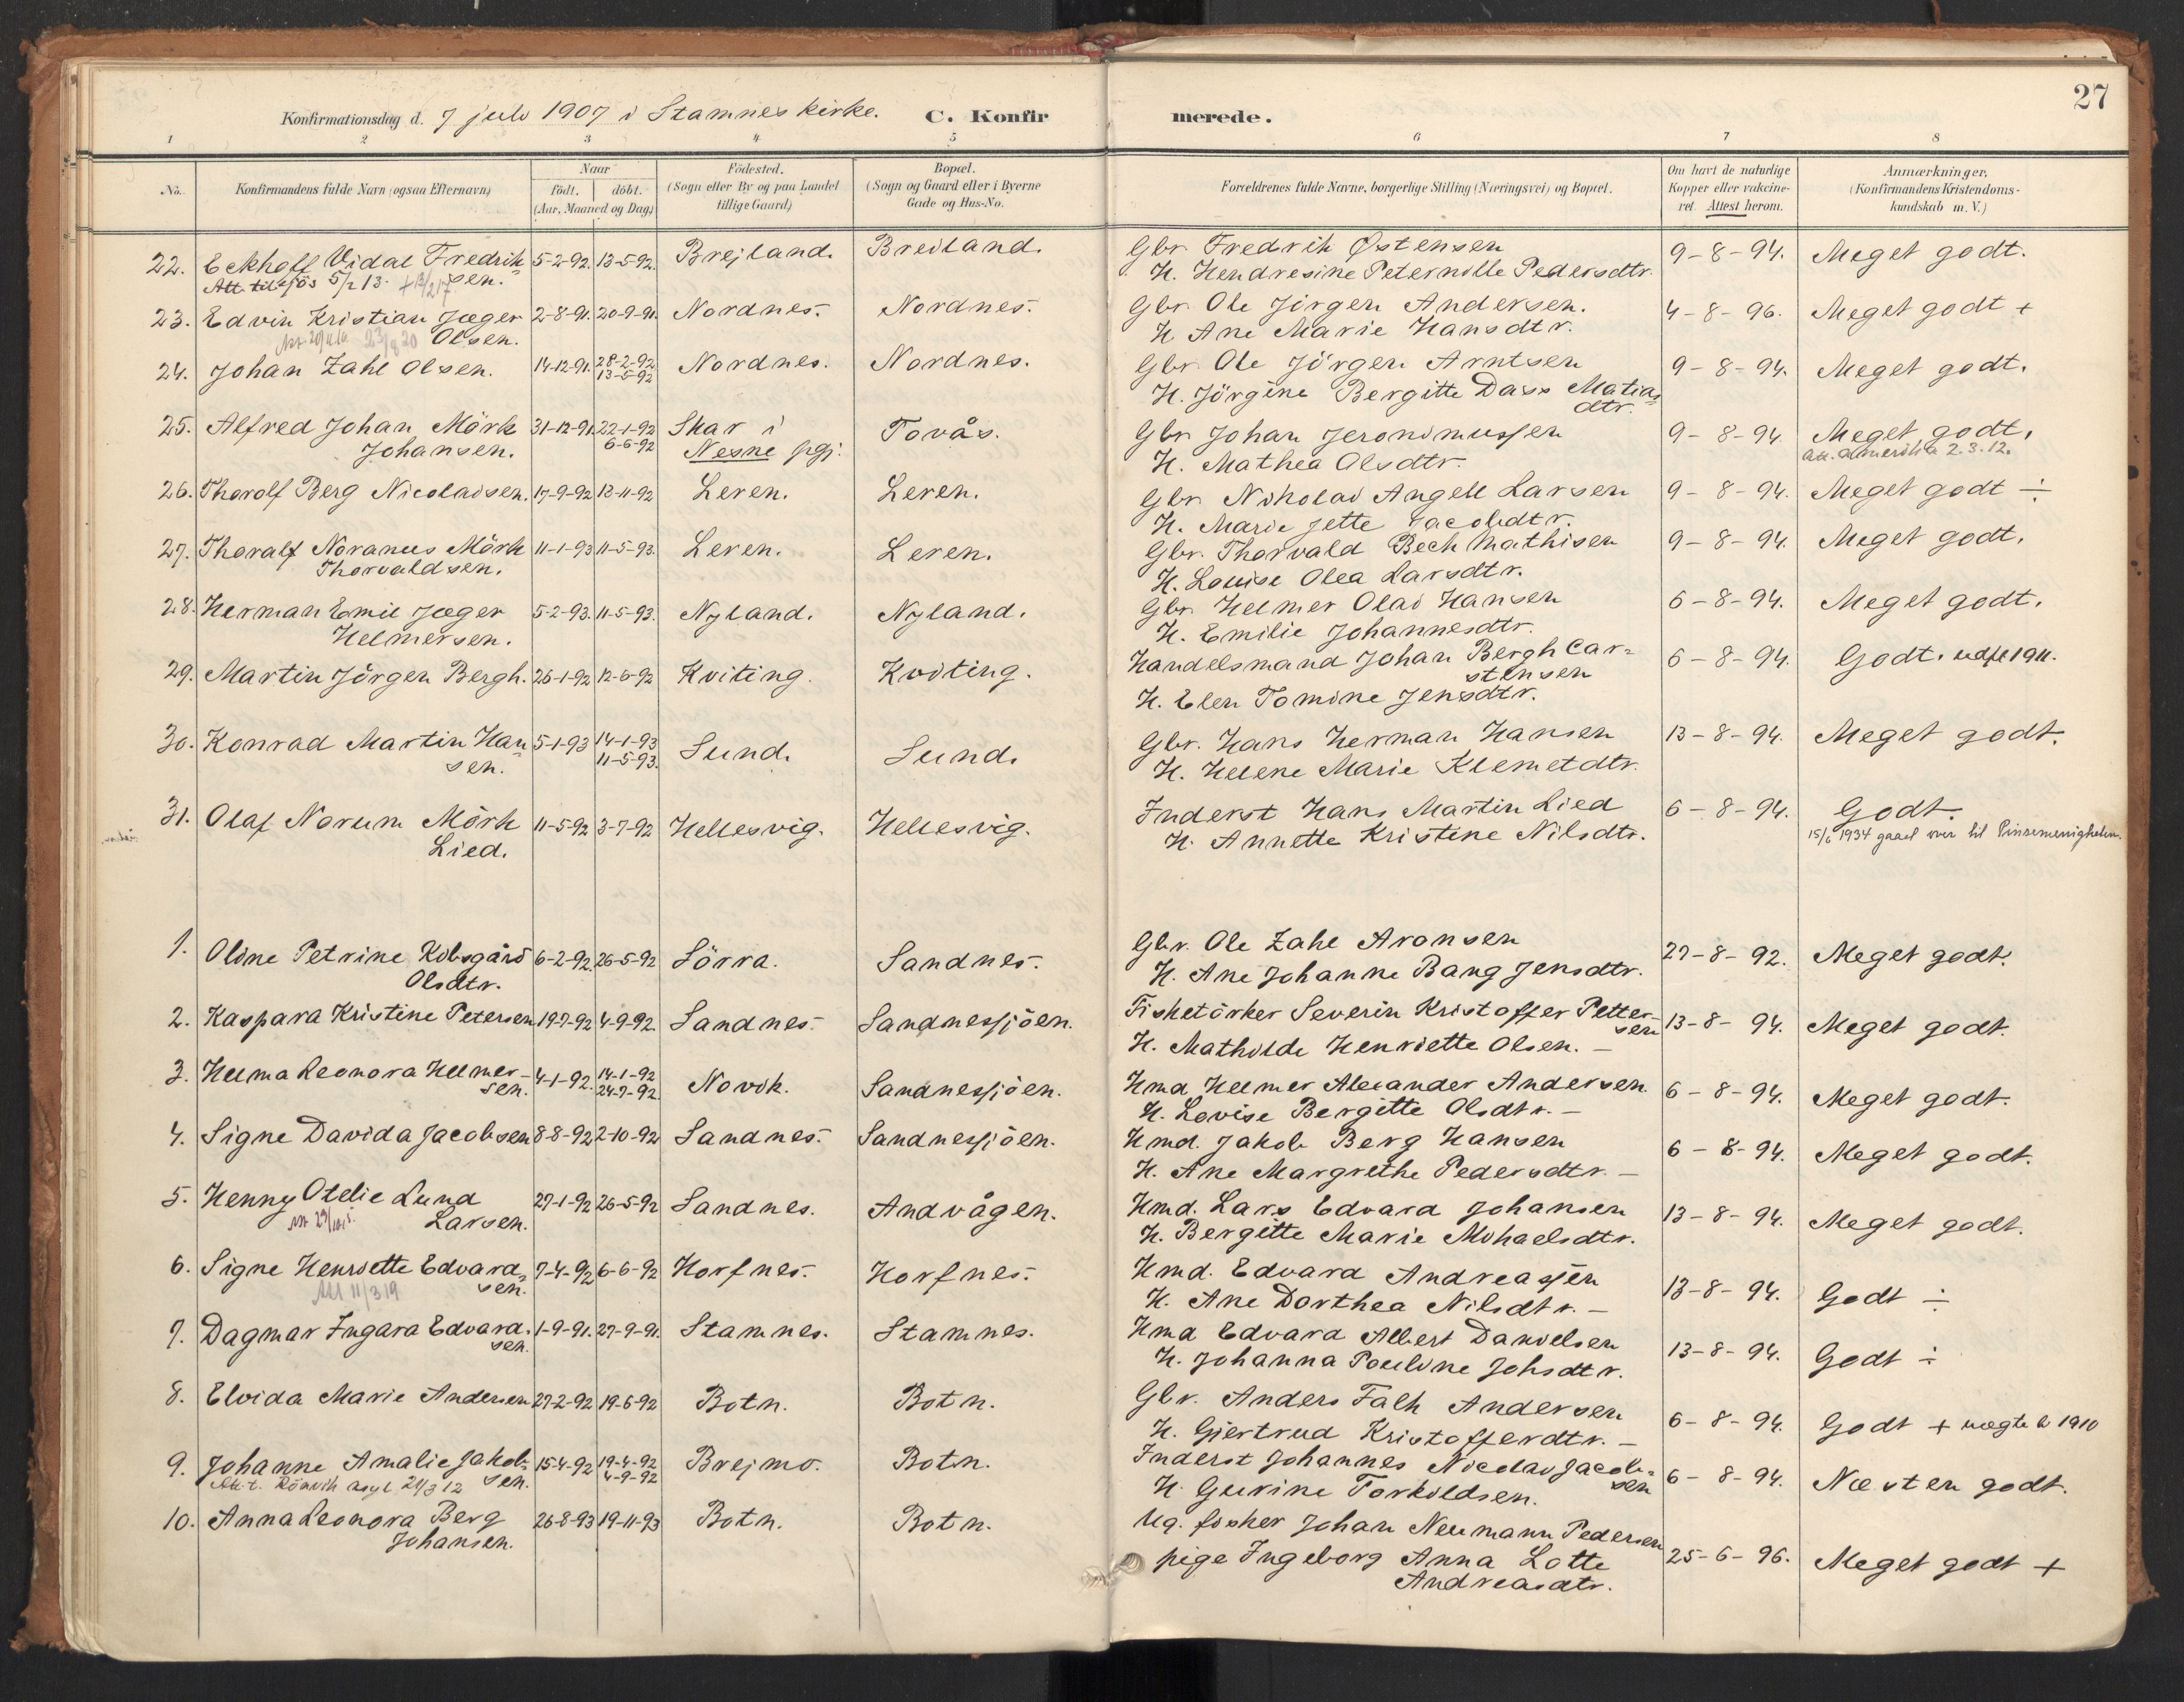 27
Konfirmationsdag d. 7 juli 1907 i Stamnes kirke. C. Konfirmerede.
1 2 3 4 5 6 7 8
No. Konfirmandens fulde Navn (ogsaa Efternavn) Naar født. døbt. (Aar, Maaned og Dag) Fødested. (Sogn eller By og paa Landet tillige Gaard) Bopæl. (Sogn og Gaard eller i Byerne Gade og Hus-No. Forældrenes fulde Navne, borgerlige Stilling (Næringsvei) og Bopæl. Om havt de naturlige Kopper eller vakcineret. Attest herom. Anmærkninger. (Konfirmandens Kristendomskundskab m. V.)
22. Eckhoff Vidal Fredrik= 5-2-92. 13-5-92. Brejland. Breiland. Gbr. Fredrik Østensen 9-8-94. Meget godt.
Att. til sjös 5/2 13. sen. H. Hendresine Peternille Pedersdtr.
23. Edvin Kristian Jæger 2-8-91. 20-9-91. Nordnes. Nordnes. Gbr. Ole Jörgen Andersen. 4-8-96. Meget godt +
Olsen. H. Ane Marie Hansdtr.
24. Johan Zahl Olsen. 14-12-91. 28-2-92 Nordnes. Nordnes. Gbr. Ole Jörgen Arntsen 9-8-94. Meget godt.
13-5-92 H. Jörgine Bergitte Dass Matias
dtr.
25. Alfred Johan Mörk 31-12-91. 22-1-92 Skar i Tovås. Gbr. Johan Jeronimussen 9-8-94 Meget godt.
Johansen. 6-6-92 Nesne pgj. H. Mathea Olsdtr. att. Amerika 2.3.12.
26. Thorolf Berg Nicolaisen. 17-9-92 13-11-92 Leren. Leren. Gbr. Nikolai Angell Larsen 9-8-94. Meget godt ÷
H. Marie Jette Jacobdtr.
27. Thoralf Noranus Mörk 11-1-93 11-5-93. Leren. Leren. Gbr. Thorvald Bech Mathisen 9-8-94. Meget godt.
Thorvaldsen. H. Louise Olea Larsdtr.
28. Herman Emil Jæger 5-2-93. 11-5-93. Nyland. Nyland. Gbr. Helmer Olai Hansen 6-8-94. Meget godt.
Helmersen. H. Emilie Johannesdtr.
29. Martin Jörgen Bergh. 26-1-92 12-6-92 Kviting. Kviting. Handelsmand Johan Bergh Car= 6-8-94. Godt. 1911.
stensen
H. Elen Tomine Jensdtr.
30. Konrad Martin Han 5-1-93 14-1-93 Sund. Sund. Gbr. Hans Herman Hansen 13-8-94. Meget godt.
sen. 11-5-93. H. Helene Marie Klemetdtr.
31. Olaf Norum Mörk 11-5-92 3-7-92 Hellesvig. Hellesvig. Inderst Hans Martin Lied 6-8-94. Godt.
Lied. H. Annette Kristine Nilsdtr. 15/6 1934 gaaet over til Pinsemenigheten.
1. Oline Petrine Kibsgård 6-2-92. 26-5-92 Sörra. Sandnes. Gbr. Ole Zahl Aronsen 27-8-92. Meget godt.
Olsdtr. H. Ane Johanne Bang Jensdtr.
2. Kaspara Kristine Petersen 19-7-92 4-9-92. Sandnes. Sandnessjöen. Fisketörker Severin Kristoffer Petter- 13-8-94. Meget godt.
sen
H. Mathilde Henriette Olsen. —
3. Helma Leonora Helmer- 4-1-92. 14-1-92 Novik. Sandnessjöen. Hmd. Helmer Alexander Andersen 6-8-94. Meget godt.
sen. 24-7-92. H. Lovise Bergitte Olsdtr. —
4. Signe Davida Jacobsen 8-8-92 2-10-92 Sandnes. Sandnessjöen. Hmd. Jakob Berg Hansen 6-8-94. Meget godt.
H. Ane Margrethe Pedersdtr. —
5. Henny Otelie Lund 27-1-92 26-5-92 Sandnes. Andvågen. Hmd. Lars Edvard Johansen 13-8-94. Meget godt.
Larsen. H. Bergitte Marie Mihaelsdtr.
6. Signe Henriette Edvard= 7-4-92 6-6-92 Horfnes. Horfnes. Hmd. Edvard Andreassen 13-8-94. Godt ÷
Att 11/3 19 sen. H. Ane Dorthea Nilsdtr. —
7. Dagmar Ingara Edvard. 1-9-91. 27-9-91. Stamnes. Stamnes. Hmd Edvard Albert Danielsen 13-8-94. Godt ÷
sen. H. Johanna Pauline Johsdtr.
8. Elvida Marie Andersen 27-2-92 19-6-92 Botn. Botn. Gbr. Anders Falk Andersen 6-8-94. Godt + 1910
H. Gjertrud Kristofferdtr. —
9. Johanne Amalie Jakob= 15-4-92 19-4-92 Brejmo. Botn. Inderst Johannes Nicolai Jacob= 6-8-94. Næsten godt.
Att. t. Rönvik asyl 21/3 12 sen. 4-9-92 sen
H. Gurine Torkildsen.
10. Anna Leonora Berg 26-8-93 19-11-93 Botn. Botn. Ug. fisker Johan Neumann Pedersen 25-6-96. Meget godt +
Johansen. pige Ingeborg Anna Lotte
Andreasdtr.